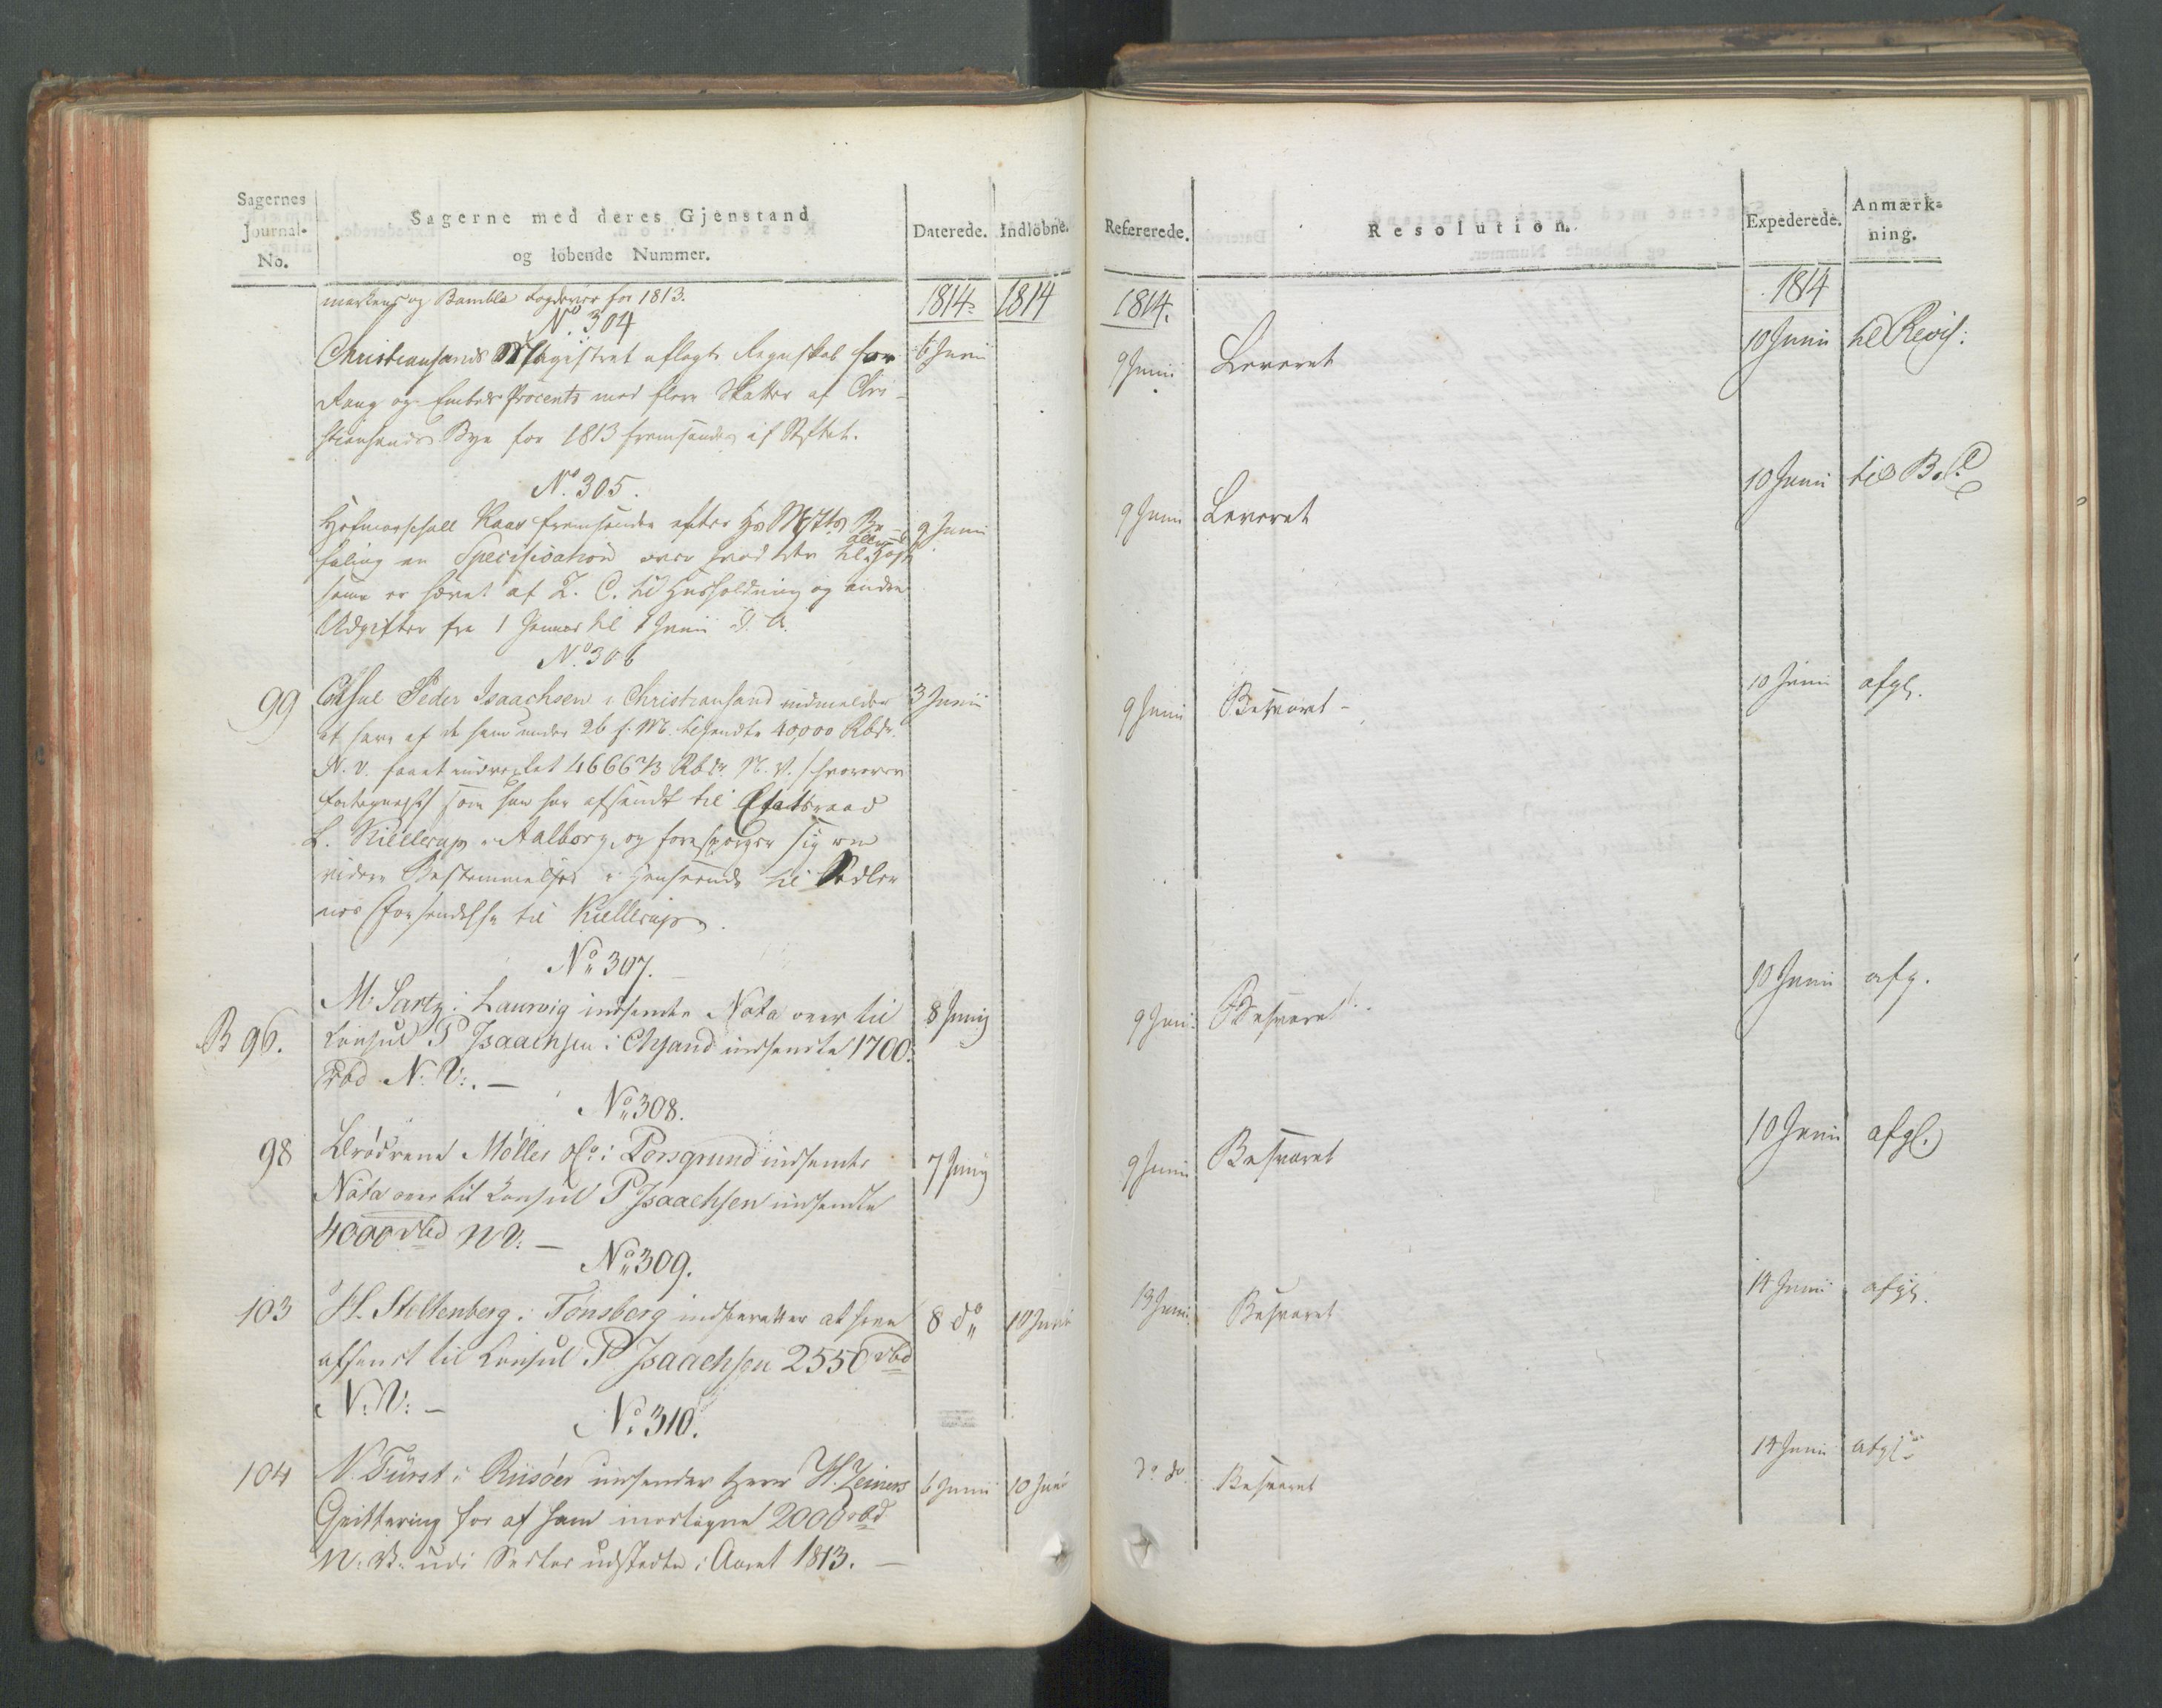 Sagernes
Journal-
No.
Sagerne med deres Gjenstand
og løbende Nummer.
Daterede.
Indløbne.
Refererede.
Resolution.
Expederede.
Anmærk-
ning.
1814.
1814
1814.
1814
markens og Bamble Fogderier for 1813.
No. 304
Christiansands Magistrat aflagte Regnskab for
Rang og Embeds Procento med flere Skatter af Chri-
stiansands Bye for 1813 fremsendes af Stiftet.
6 Junii
9 Junii
Leveret
10 Junii
til Revis:
No. 305.
Hofmarschall Kaas fremsender efter Hs Mjts Be-
faling en Specification over hvad der til
er hævet af Z. C. til Huusholdning og andre
Udgifter fra 1 Januar til Junii d. A.
9 Junii
9 Junii
Leveret
10 Junii
No. 306
99
Consul Peder Isaachsen i Christiansand indmelder
at have af de ham under 26 f. M. tilsendte 40,000 Rbdr.
N. V. faaet indvexlet 4666 2/3 Rbdr. N. V. / hvorover
som han har afsendt til Etatsraad
L. Kiellerup i Aalborg, og forespørger sig om
videre Bestemmelse i Henseende til Sedler
nes Forsendelse til Kiellerup.
3 Junii
9 Junii
Besvaret -
10 Junii
afgl.
No 307.
B 96.
M. Sartz i Laurvig indsendte Nota over til
Consul P Isaachsen i Chsand indsendte 1700
Rbd N: V:. —
8 Junij
9 Juni
Besvaret
10 Junii
afg.
No 308.
98
Brødrene Møller & Co i Porsgrund indsendte
Nota over til Consul P. Isaachsen indsendte
4000 rbd N V: —
7 Junij
9 Junii
Besvaret
10 Junii
afgl.
No 309.
103
H. Stoltenberg i Tønsberg indberetter at have
afsendt til Consul P Isaachsen 2550 rbd
N: V: —
8 do
10 Junii
13 Junii
Besvaret
14 Junii
afgl.
No. 310.
104
N. Fürst i Riisöer indsender Herr H. Zeiners
Qvittering for af ham modtagne 2000 rbd
N: V: udi Sedler udstedte i Aaret 1813. —
6 Junii
10 Junii
do do
Besvaret
14 Junii
afgl.